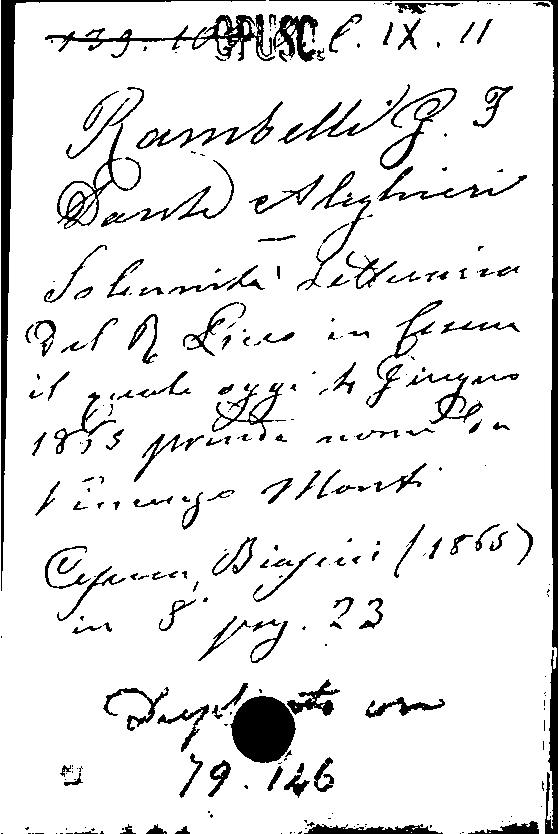 OPUSC. C. IX. 11
Rambelli G. F
Dante Alighieri
—
Solennità letteraria
Del R Liceo in Cesena
il quale oggi 4 Giugno
1865 prende nome da
Vincenzo Monti
Cesena, Biasini (1865)
in 8° pag. 23
Duplicato con
79.146